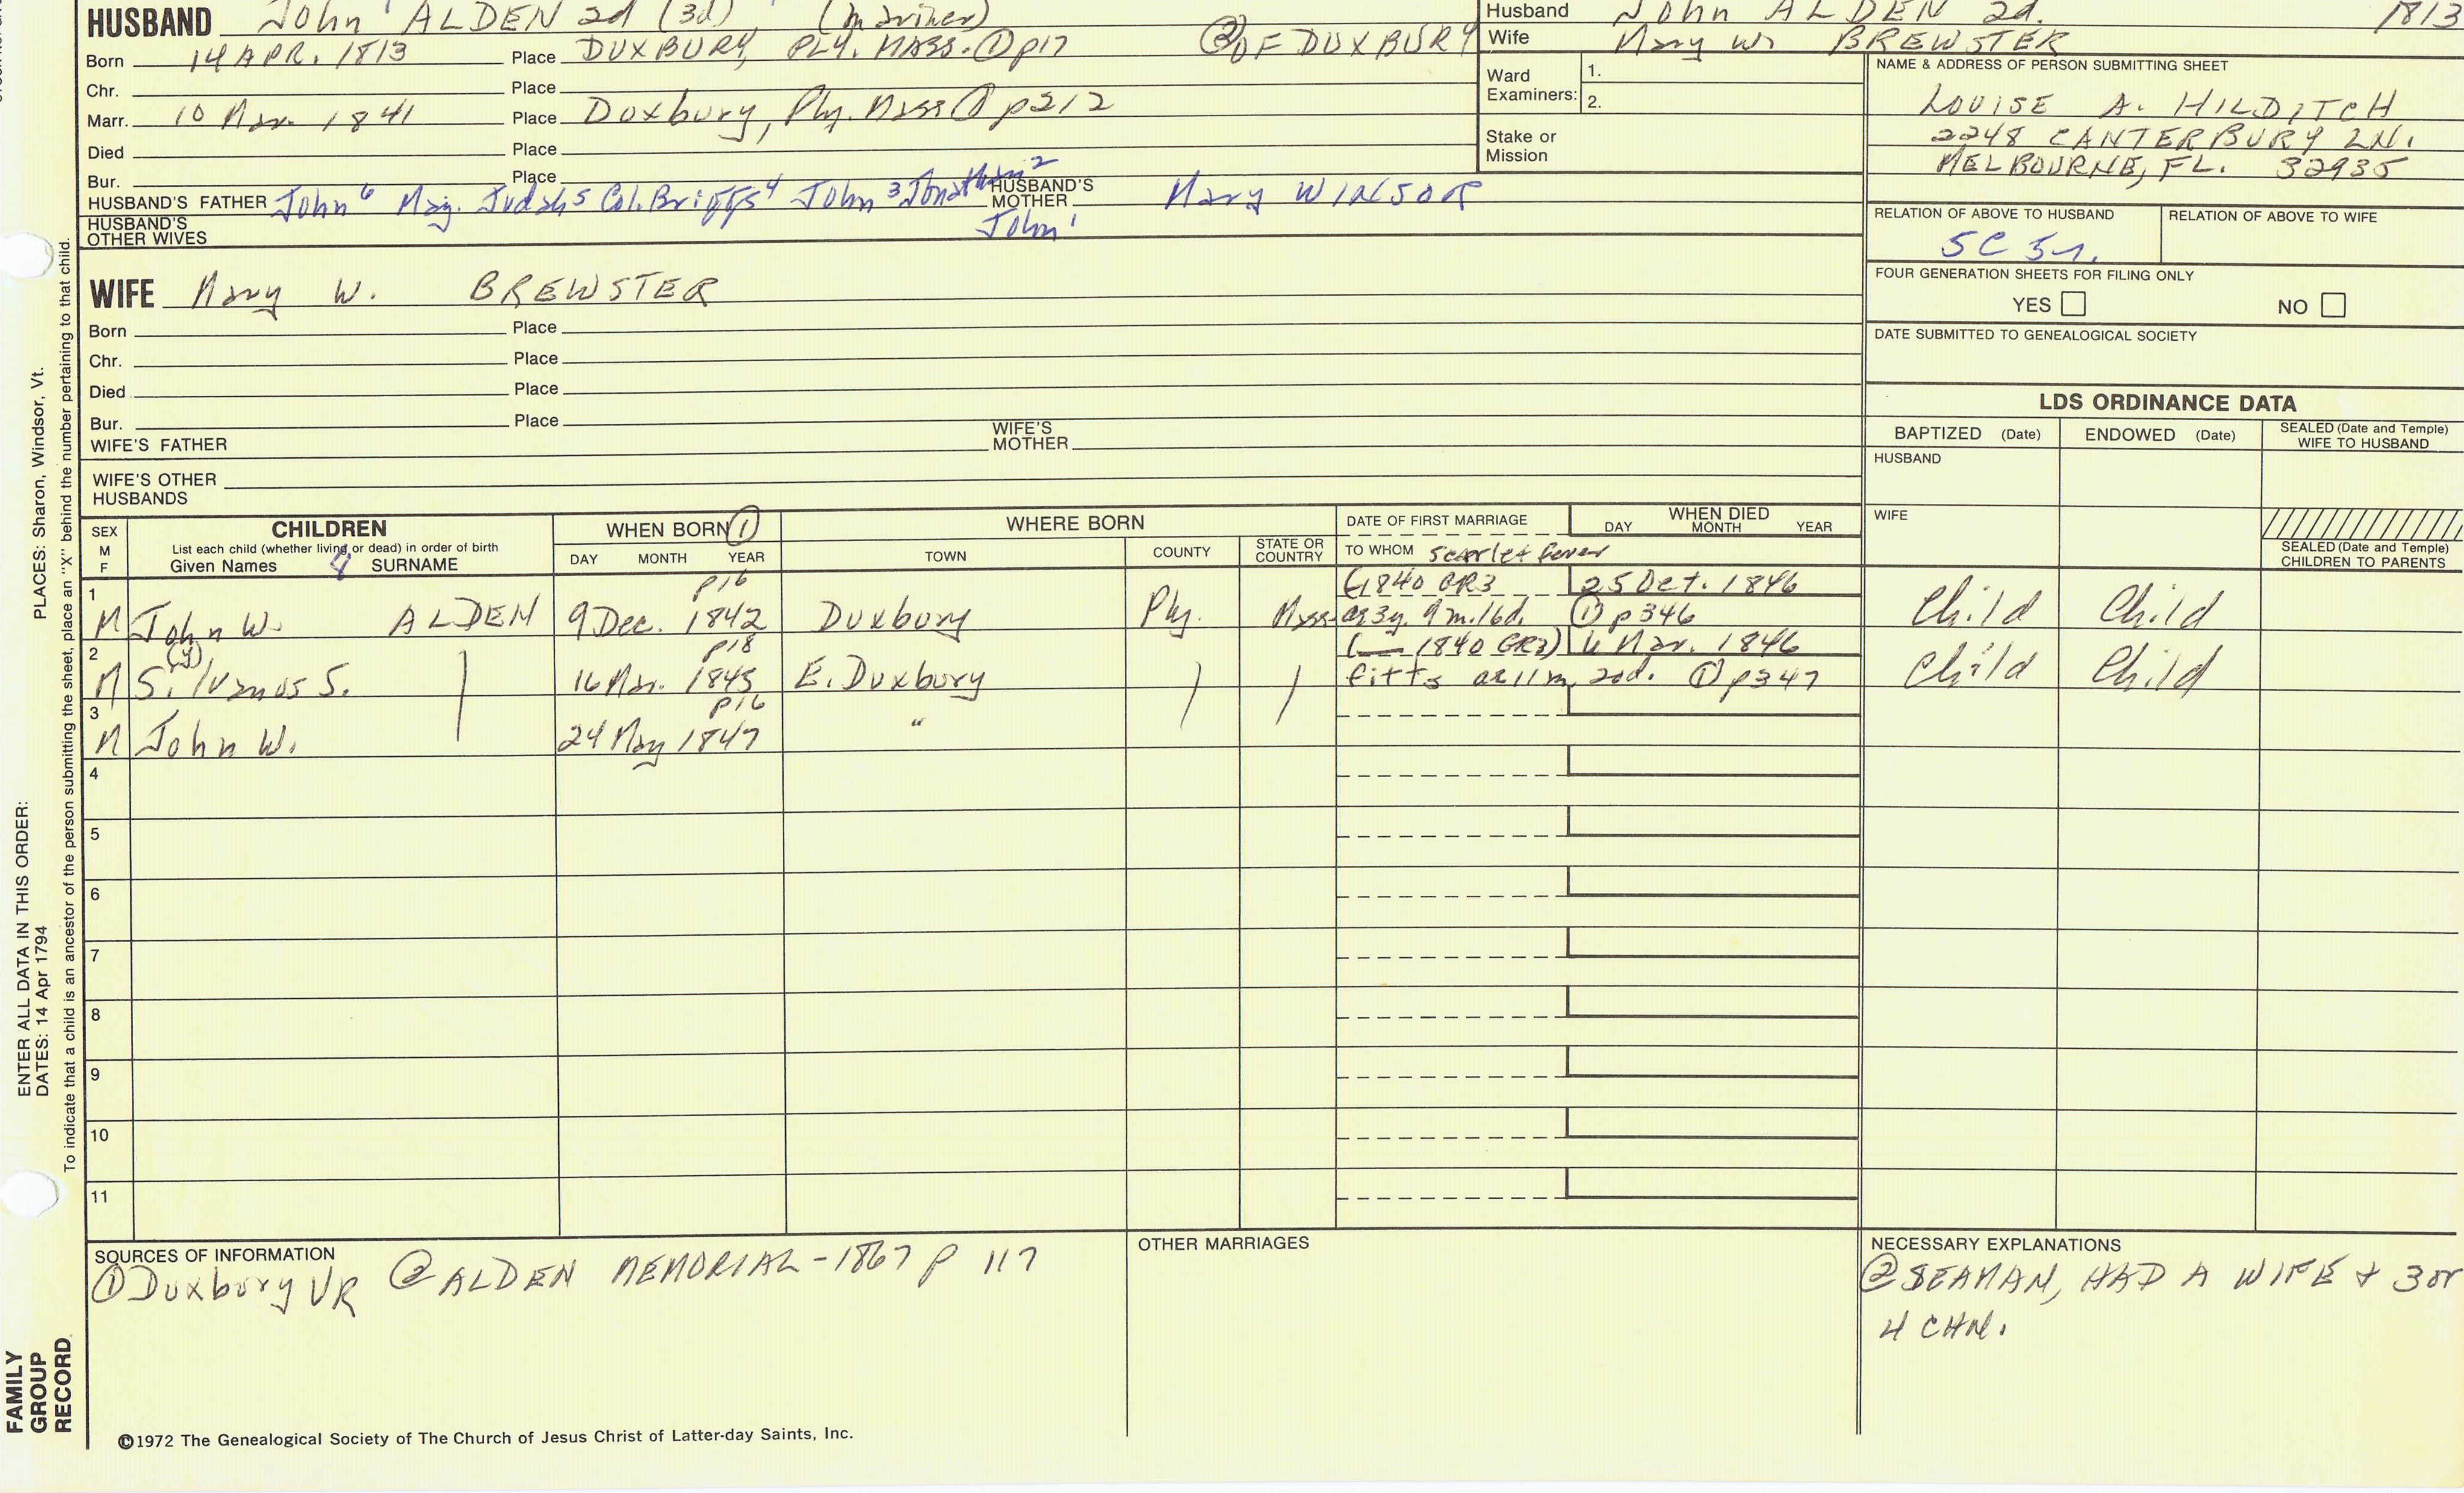 HUSBAND John ALDEN 2d (3d) (mariner)
Born 14 APR. 1813 Place DUXBURY, PLY. MASS. ① p17 ② OF DUXBURY
Chr. Place
Marr. 10 Mar. 1841 Place Duxbury, Ply. Mass ① p212
Died Place
Bur. Place
HUSBAND'S FATHER John 6 Maj. Judah 5 Col. Briggs 4 John 3 Jonathan 2 HUSBAND'S MOTHER Mary WINSOR
John 1
HUSBAND'S OTHER WIVES
Husband John ALDEN 2d. 1813
Wife Mary W. BREWSTER
Ward Examiners: 1.
2.
Stake or Mission
NAME & ADDRESS OF PERSON SUBMITTING SHEET
LOUISE A. HILDITCH
2248 CANTERBURY LN.
MELBOURNE, FL. 32935
RELATION OF ABOVE TO HUSBAND RELATION OF ABOVE TO WIFE
5C 5r.
FOUR GENERATION SHEETS FOR FILING ONLY
YES NO
DATE SUBMITTED TO GENEALOGICAL SOCIETY
WIFE Mary W. BREWSTER
Born Place
Chr. Place
Died Place
Bur. Place
WIFE'S FATHER WIFE'S MOTHER
WIFE'S OTHER HUSBANDS
LDS ORDINANCE DATA
BAPTIZED (Date) ENDOWED (Date) SEALED (Date and Temple) WIFE TO HUSBAND
HUSBAND
WIFE
SEALED (Date and Temple) CHILDREN TO PARENTS
SEX M F
CHILDREN
List each child (whether living or dead) in order of birth
Given Names 8 SURNAME
WHEN BORN ①
DAY MONTH YEAR
WHERE BORN
TOWN COUNTY STATE OR COUNTRY
DATE OF FIRST MARRIAGE
TO WHOM scarlet fever
WHEN DIED
DAY MONTH YEAR
p16 (1840 GR3 25 Oct. 1846
1 M John W. ALDEN 9 Dec. 1842 Duxbury Ply. Mass ae 3y. 9m. 16d. ① p346 Child Child
(y) p18 ( 1840 GR3) 6 Mar. 1846
2 M Silvanus S. 16 Mar. 1845 E. Duxbury fitts ae 11m 20d. ① p347 Child Child
p16
3 M John W. 24 May 1847 "
4
5
6
7
8
9
10
11
SOURCES OF INFORMATION
① Duxbury VR ② ALDEN MEMORIAL - 1867 p 117
OTHER MARRIAGES
NECESSARY EXPLANATIONS
② SEAMAN, HAD A WIFE + 3 or
4 CHN.
©1972 The Genealogical Society of The Church of Jesus Christ of Latter-day Saints, Inc.
FAMILY GROUP RECORD
ENTER ALL DATA IN THIS ORDER:
DATES: 14 Apr 1794
PLACES: Sharon, Windsor, Vt.
To indicate that a child is an ancestor of the person submitting the sheet, place an "X" behind the number pertaining to that child.